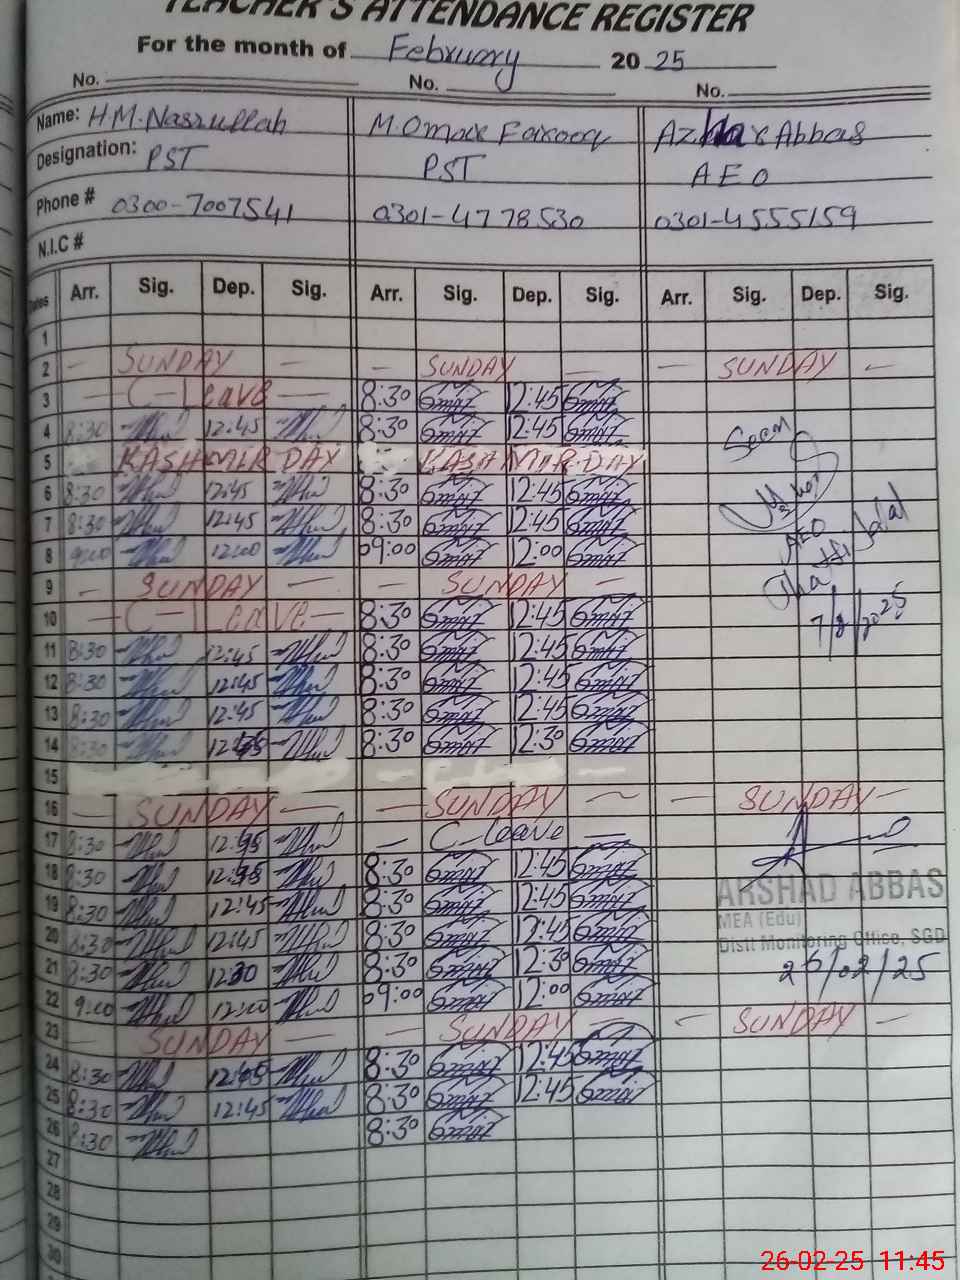 TEACHER'S ATTENDANCE REGISTER
For the month of February 2025
No. No. No.
Name: H.M.Nasrullah M.Omar Farooq Azhar Abbas
Designation: PST PST AEO
Phone # 0300-7007541 0301-4778530 0301-4555159
N.I.C #
Dates Arr. Sig. Dep. Sig. Arr. Sig. Dep. Sig. Arr. Sig. Dep. Sig.
1
2 — SUNDAY — — SUNDAY — — SUNDAY —
3 — C-Leave — 8:30 12:45
4 8:30 12:45 8:30 12:45 Seen
5 KASHMIR DAY KASHMIR DAY
6 8:30 12:45 8:30 12:45
7 8:30 12:45 8:30 12:45 AEO
8 9:00 12:00 09:00 12:00
9 — SUNDAY — — SUNDAY —
10 — C-Leave — 8:30 12:45 7/2/2025
11 8:30 12:45 8:30 12:45
12 8:30 12:45 8:30 12:45
13 8:30 12:45 8:30 12:45
14 8:30 12:45 8:30 12:30
15
16 — SUNDAY — — SUNDAY — — SUNDAY —
17 8:30 12:45 — C-leave —
18 8:30 12:45 8:30 12:45 ARSHAD ABBAS
19 8:30 12:45 8:30 12:45 MEA (Edu)
20 8:30 12:45 8:30 12:45 Distt Monitoring Office, SGD
21 8:30 12:30 8:30 12:30 26/02/25
22 9:00 12:00 09:00 12:00
23 — SUNDAY — — SUNDAY — — SUNDAY —
24 8:30 12:45 8:30 12:45
25 8:30 12:45 8:30 12:45
26 8:30 8:30
27
28
29
30
26-02-25 11:45